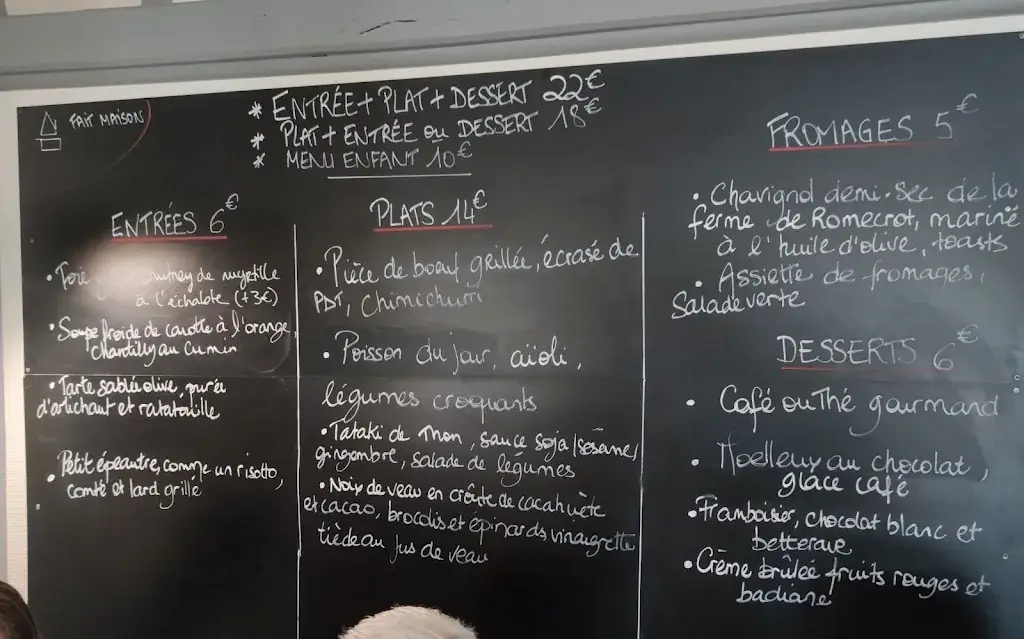 FAIT MAISON
* ENTRÉE + PLAT + DESSERT 22€
* PLAT + ENTRÉE OU DESSERT 18€
* MENU ENFANT 10€
ENTRÉES 6€
• Foie de myrtille
à l'échalote (+3€)
• Soupe froide de carotte à l'orange,
chantilly au cumin
• Tarte sablée olive, purée
d'artichaut et ratatouille
• Petit épeautre, comme un risotto,
comté et lard grillé
PLATS 14€
• Pièce de boeuf grillée, écrasé de
PDT, Chimichurri
• Poisson du jour, aïoli,
légumes croquants
• Tataki de Thon, sauce soja/sésame/
gingembre, salade de légumes
• Noix de veau en croûte de cacahuète
et cacao, brocolis et épinards vinaigrette
tiède au jus de veau
FROMAGES 5€
• Chavignol demi-sec de la
ferme de Romecrot, mariné
à l'huile d'olive, toasts
• Assiette de fromages,
Salade verte
DESSERTS 6€
• Café ou Thé gourmand
• Moelleux au chocolat,
glace café
• Framboisier, chocolat blanc et
betterave
• Crème brûlée fruits rouges et
badiane